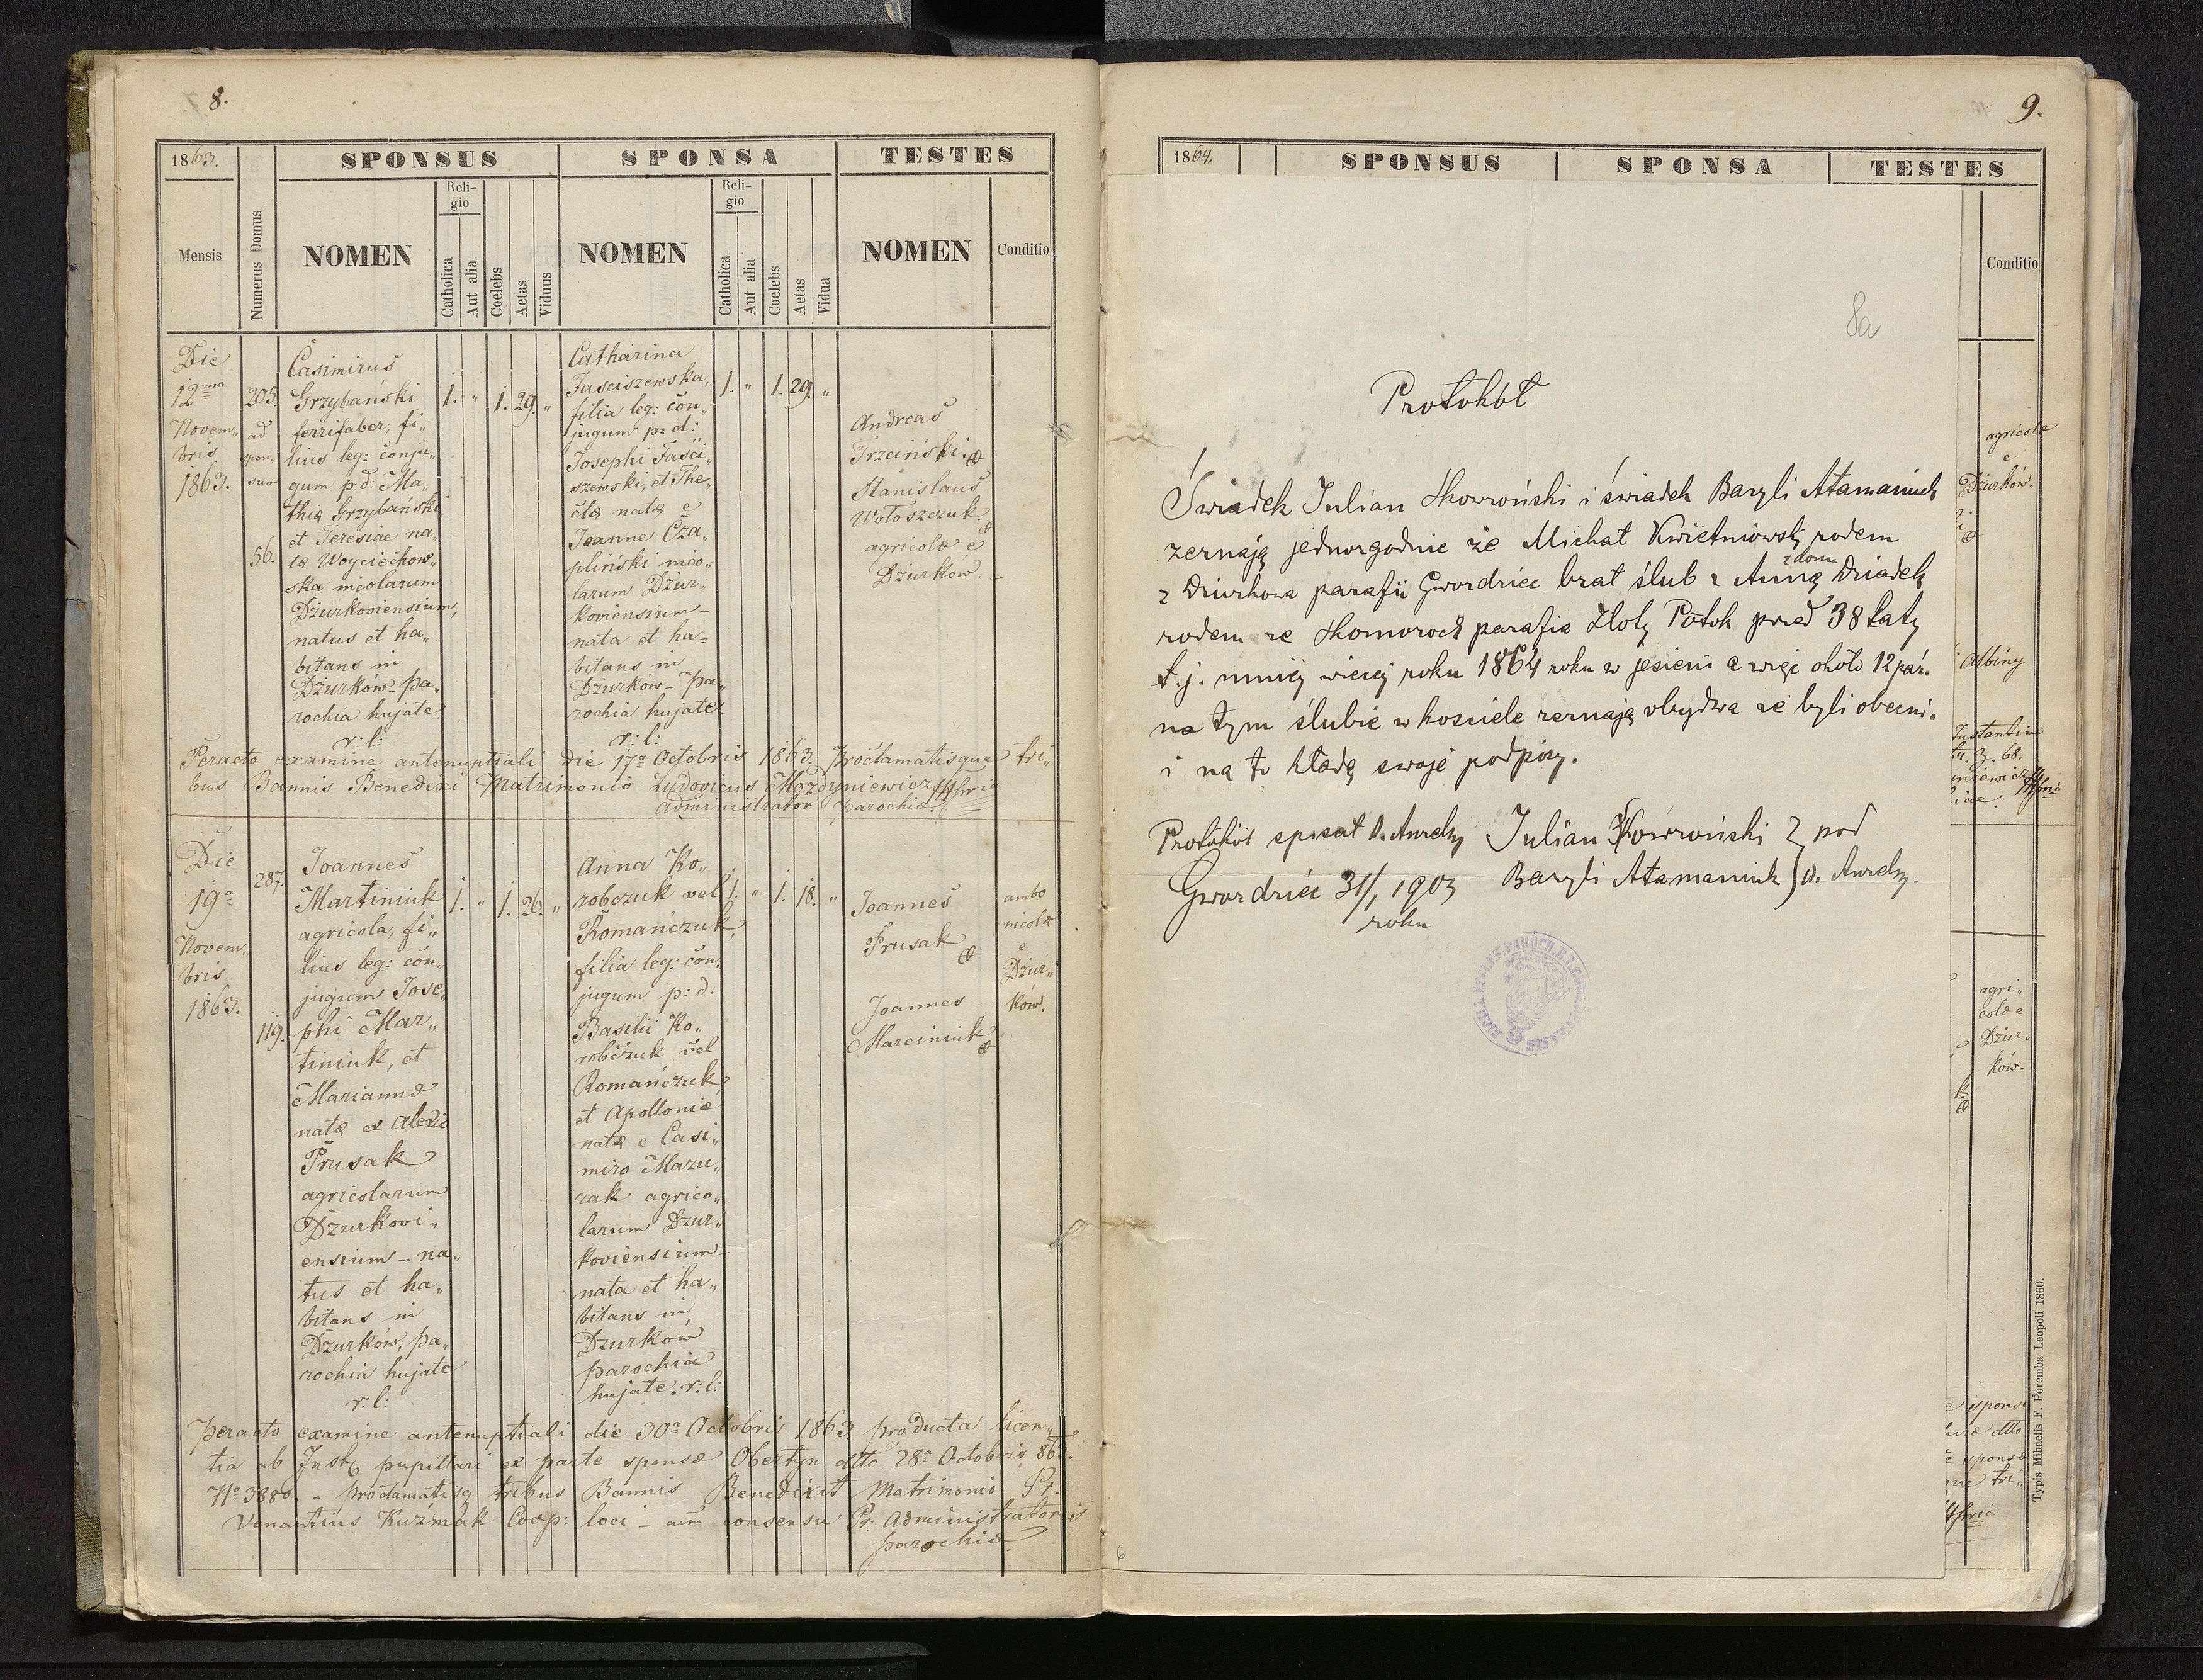 8.
1863.
SPONSUS
SPONSA
TESTES
Mensis
Numerus Domus
NOMEN
Reli-
gio
Catholica
Aut alia
Coelebs
Aetas
Viduus
NOMEN
Reli-
gio
Catholica
Aut alia
Coelebs
Aetas
Vidua
NOMEN
Conditio
Die
12ma
Novem„
bris
1863.
205.
ad
spon„
sum
56.
Casimirus
Grzybański
ferrifaber, fi„
lius leg: conju„
gum p: d: Ma„
thiæ Grzybański
et Teresiae na„
tæ Woyciechow„
ska incolarum
Dżurkoviensium,
natus et ha„
bitans in
Dżurków – pa„
rochia hujate.
r: l:
1. „ 1. 29. „
Catharina
Fasciszewska,
filia leg: con„
jugum p: d:
Josephi Fasci„
szewski, et The„
clæ natæ e
Joanne Cza„
pliński inco„
larum Dżur„
koviensium –
nata et ha=
bitans in
Dżurków – pa„
rochia hujate.
r: l:
1. „ 1. 29. „
Andreas
Trzciński.
Stanislaus
Wołoszczuk
agricolæ e
Dżurkow.
Peracto examine antenuptiali die 17a Octobris 1863. Proclamatisque tri„
bus Bannis Benedixi Matrimonio Ludovicus Mozdyniewicz
administrator parochiæ.
Die
19a
Novem.
bris
1863.
287.
119.
Joannes
Martiniuk
agricola, fi„
lius leg: con„
jugum Jose„
phi Mar„
tiniuk, et
Mariannæ
natæ ex Alexio
Prusak
agricolarum
Dżurkovi„
ensium – na„
tus et ha„
bitans in
Dżurków, pa„
rochia hujate
r: l:
1. „ 1. 26. „
Anna Ko„
robczuk vel
Romańczuk,
filia leg: con„
jugum p: d:
Basilii Ko„
robczuk vel
Romańczuk
et Apolloniæ
natæ e Casi„
miro Mazu„
rak agrico„
larum Dżur„
koviensium –
nata et ha„
bitans in
Dżurków
parochia
hujate. r: l:
1. „ 1. 18. „
Joannes
Prusak
Joannes
Marciniuk
ambo
incolæ
e
Dżur„
ków.
Peracto examine antenuptiali die 30a Octobris 1863 producta licen„
tia ab Inst. pupillari ex parte sponsæ Obertyn dtto 28a Octobris 863.
No 3880. – proclamatisq tribus Bannis Benedixit Matrimonio Pr.
Venantius Kuźmak Coop: loci – cum consensu Pr: Administratoris
parochiæ.
9.
1864.
SPONSUS
SPONSA
TESTES
Conditio
8a
Protokół
Świadek Julian Skowroński i świadek Bazyli Atamaniuk
zeznają jednozgodnie że Michał Kwietniowski rodem
z domu
z Dziurkowa parafii Gwoździec brał ślub z Anną Dziadek
rodem ze Skomoroch parafia Złoty Potok przed 38 laty
t. j. mniej więcej roku 1864 roku w jesieni a więc około 12 paź.
na tym ślubie w kościele zeznają obydwa że byli obecni.
i na to kładą swoje podpisy.
Protokół spisał O. Aureli
Julian Skowroński } pod
Gwoździec 31/1 1903
roku
Bazyli Atamaniuk } O. Aureli.
agricolæ
e
Dżurków.
Albiny
Instantia
3. 68.
agri„
colæ e
Dżur„
ków.
6
Typis Mihaelis F. Poremba Leopoli 1860.